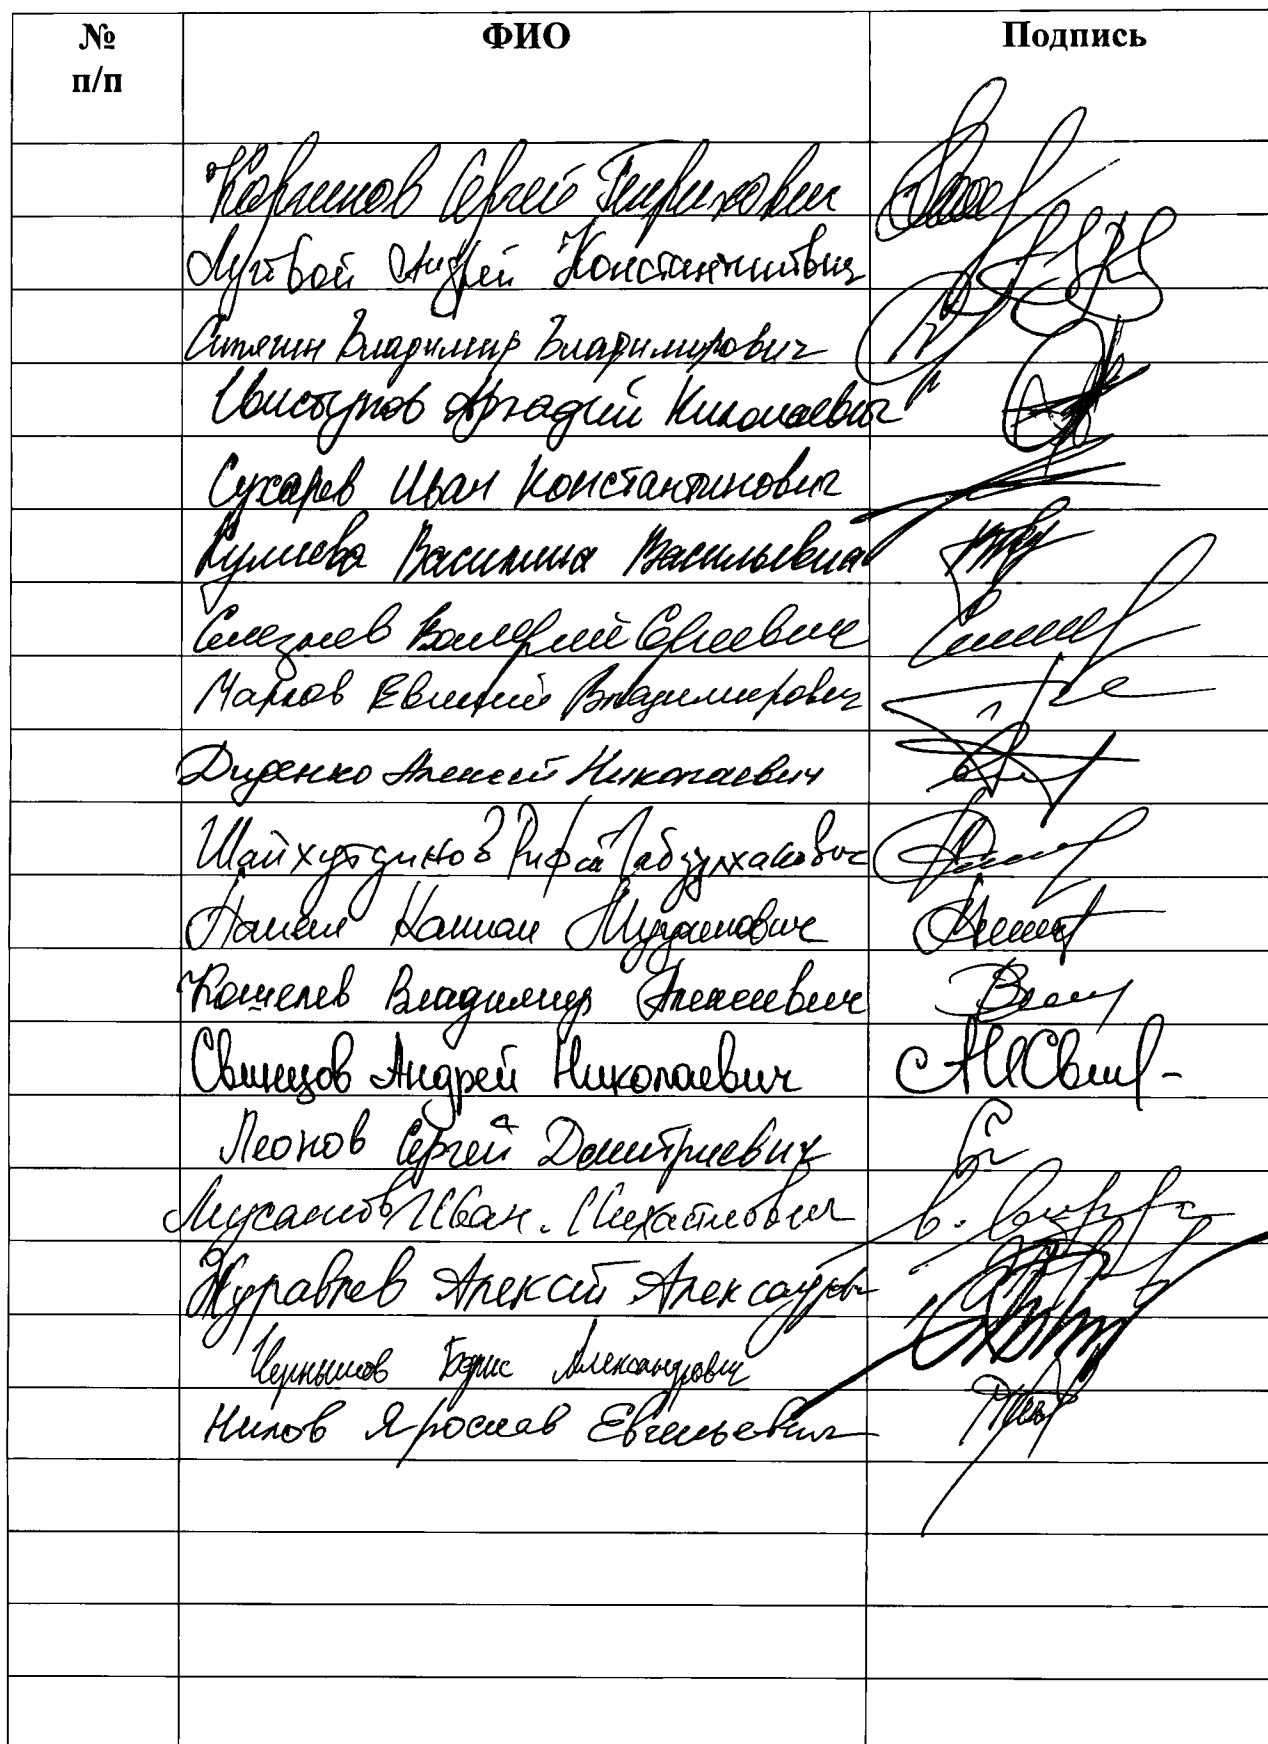 № п/п ФИО Подпись
Каргинов Сергей Генрихович
Луговой Андрей Константинович
Сипягин Владимир Владимирович
Свистунов Аркадий Николаевич
Сухарев Иван Константинович
Кулиева Василина Васильевна
Селезнев Валерий Сергеевич
Марков Евгений Владимирович
Диденко Алексей Николаевич
Шайхутдинов Рифат Габдулхакович
Панеш Каплан Мугдинович
Кошелев Владимир Алексеевич
Свинцов Андрей Николаевич
Леонов Сергей Дмитриевич
Мусатов Иван. Михайлович
Журавлев Алексей Александрович
Чернышов Борис Александрович
Нилов Ярослав Евгеньевич